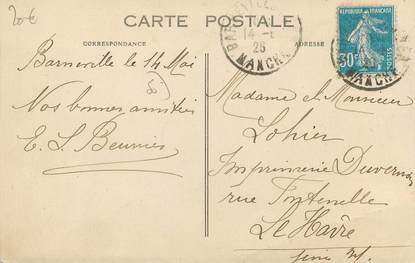 20€
CARTE POSTALE
CORRESPONDANCE
ADRESSE
BARNEVILLE
14 -
26
MANCHE
REPUBLIQUE FRANÇAISE
30c
POSTES
MANCHE
Barneville le 14 Mai
Nos bonnes amitiés
E. L.
Madame et Monsieur
Lohier
Imprimerie Duvernoy
rue Fontenelle
Le Hâvre
Seine Inf.